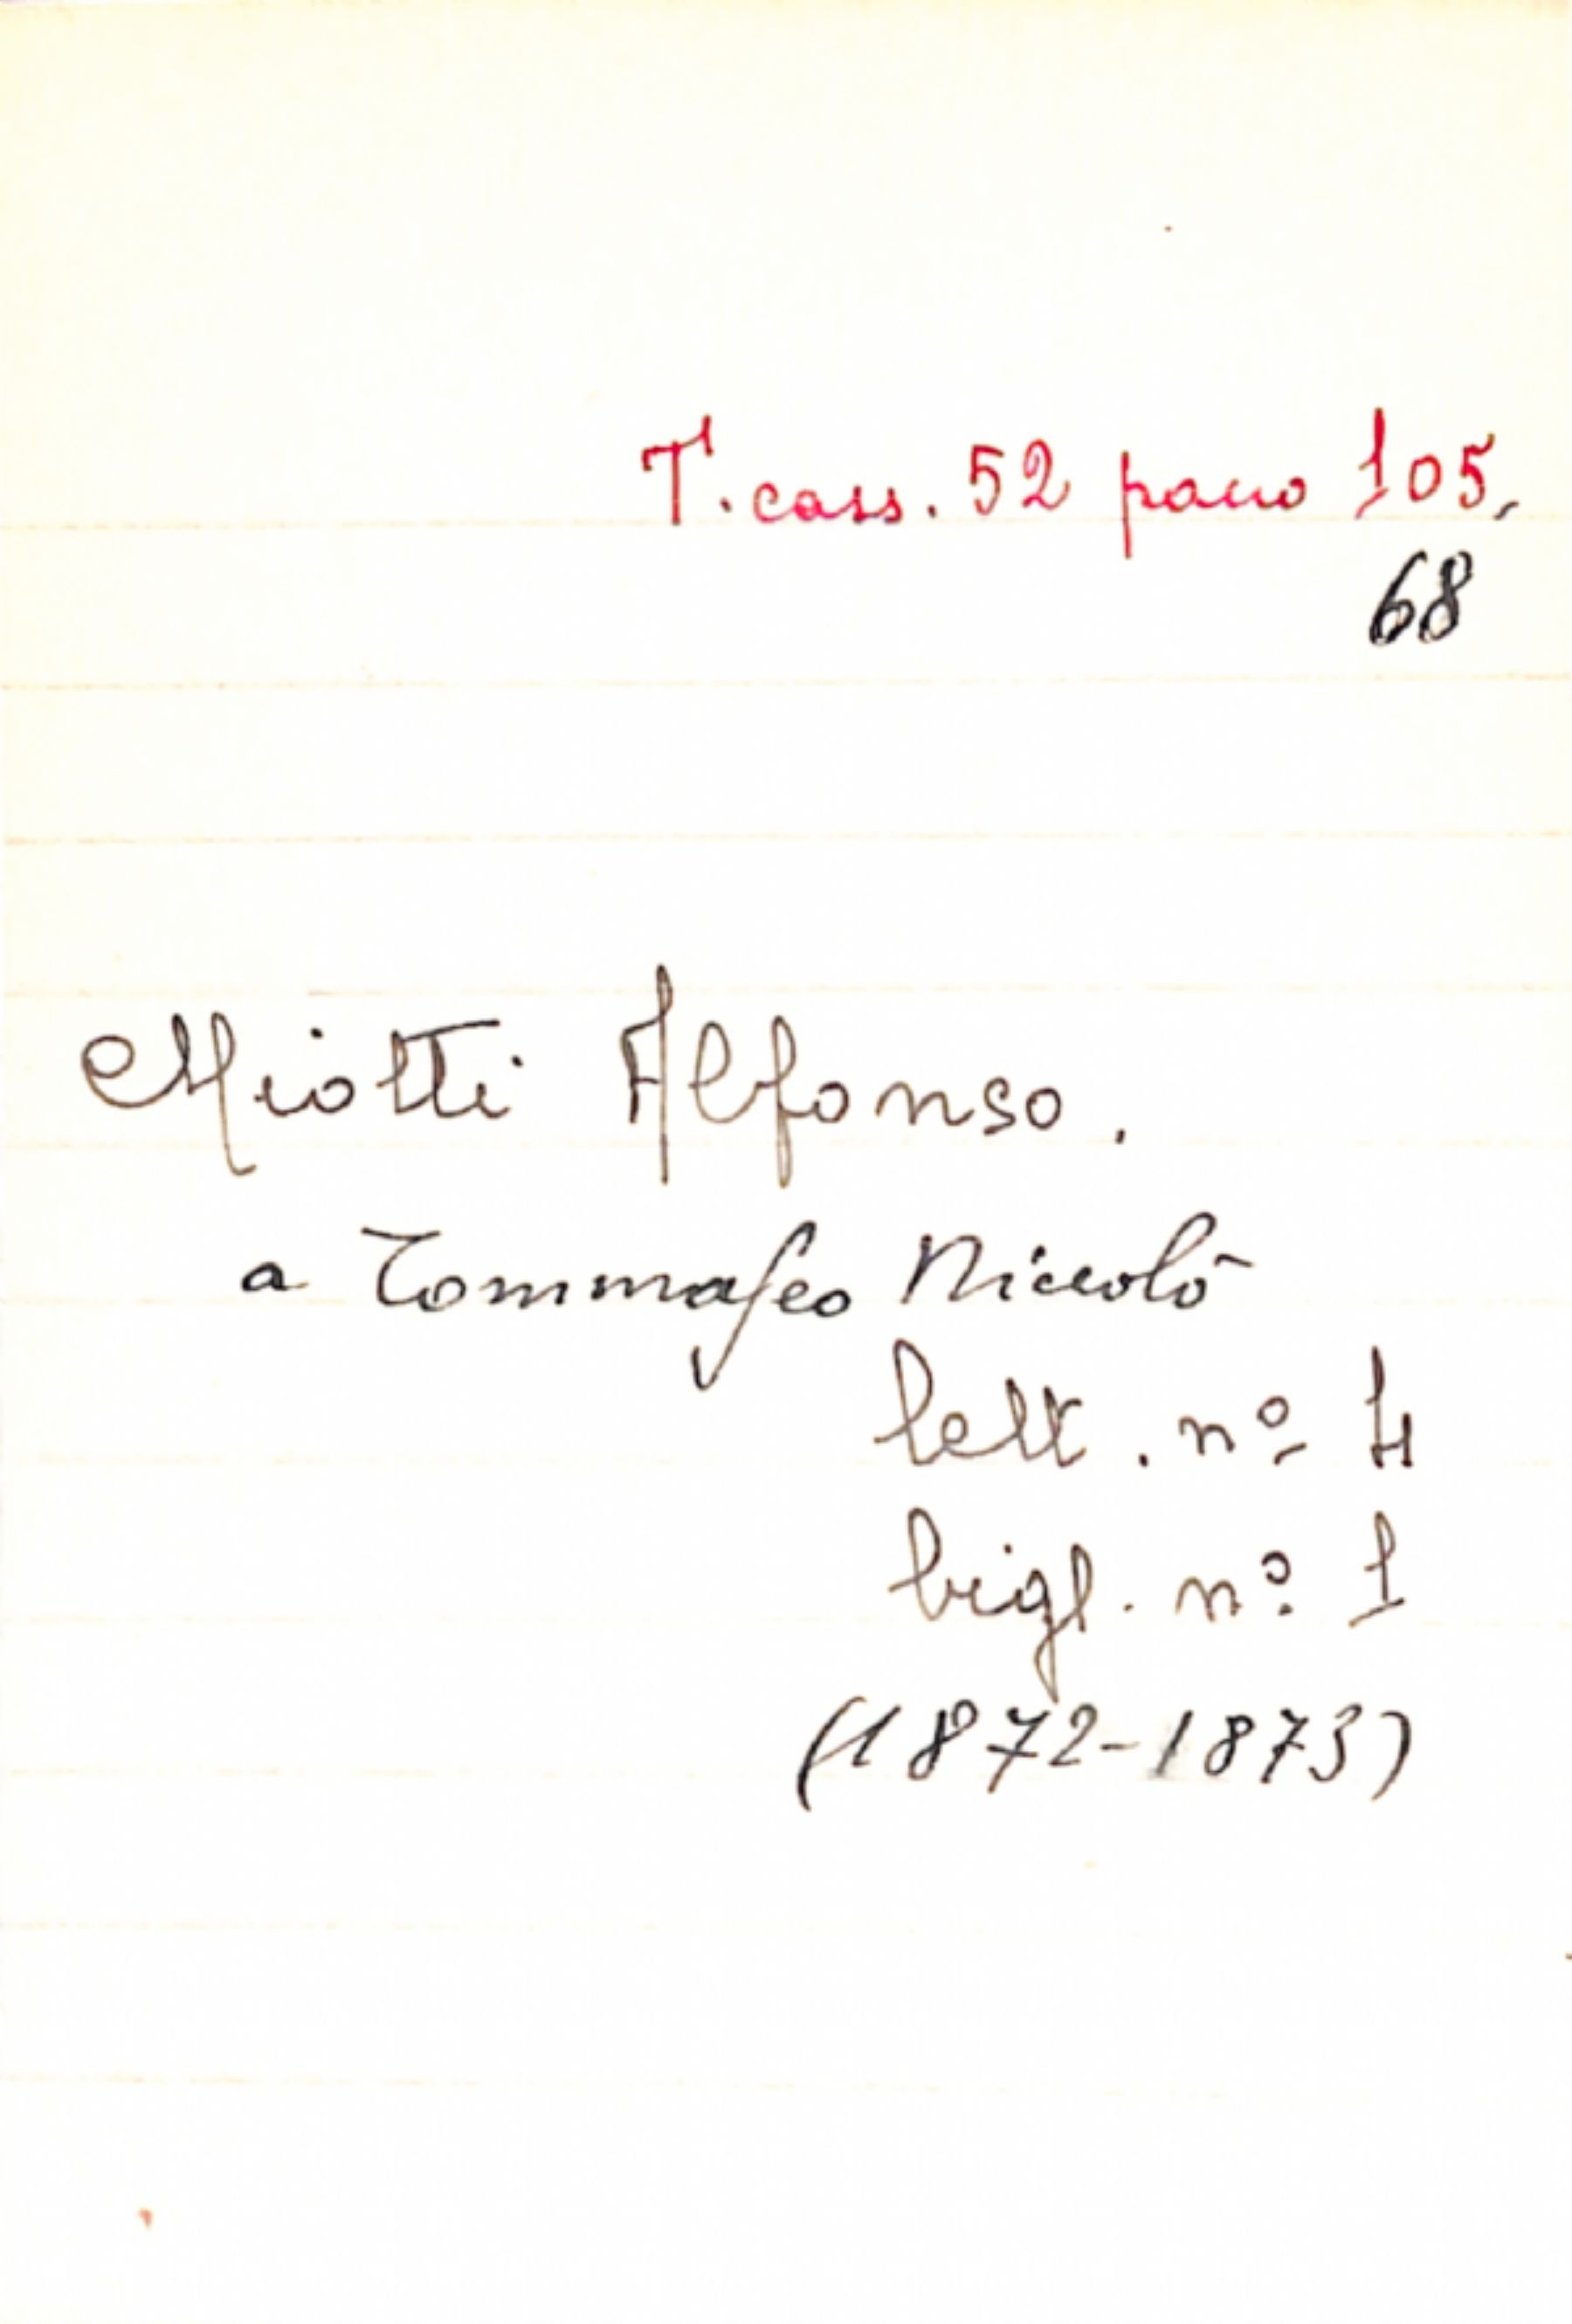 T. cass. 52 pacco 105,
68
Miotti Alfonso.
a Tommaseo Niccolò
lett. nº 4
bigl. nº 1
(1872-1873)